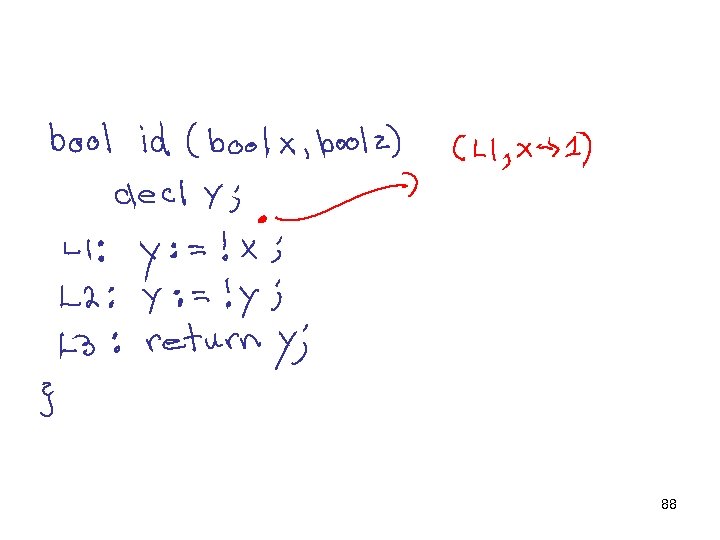 bool id (bool x, bool z) (L1, x → 1)
decl y;
L1: y := !x;
L2: y := !y;
L3: return y;
}
88